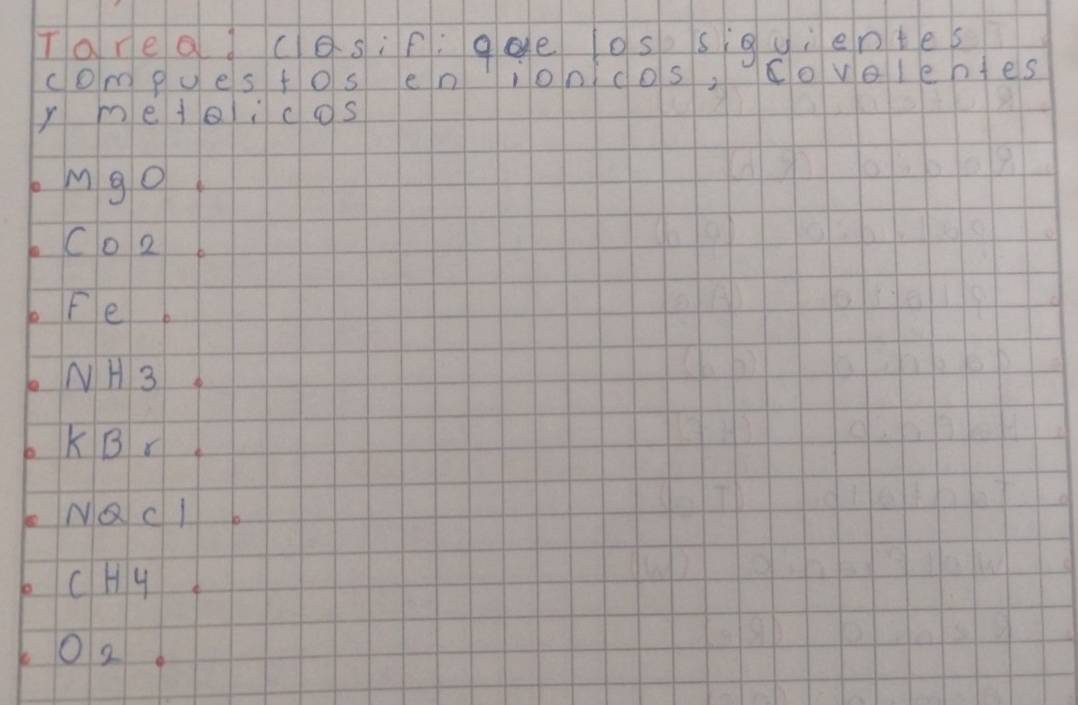 Tarea: clasifique los siguientes
compuestos en ionicos, Covalentes
y metalicos
• MgO.
• CO2.
• Fe.
• NH3.
• KBr.
• Nacl.
• CH4.
• O2.